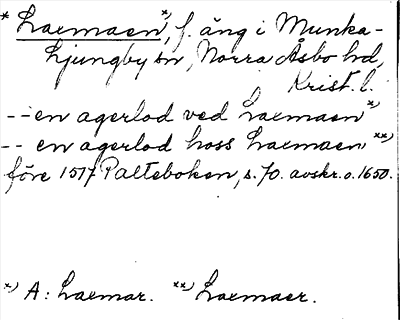 * Laemaen*, f. äng i Munka-
Ljungby sn, Norra Åsbo hd,
Krist. l.
-- en agerlod ved Laemaen*)
-- en agerlod hoss Laemaen**)
före 1517 Palteboken, s. 70. avskr. o. 1650.
*) A: Laemar. **) Laemaer.